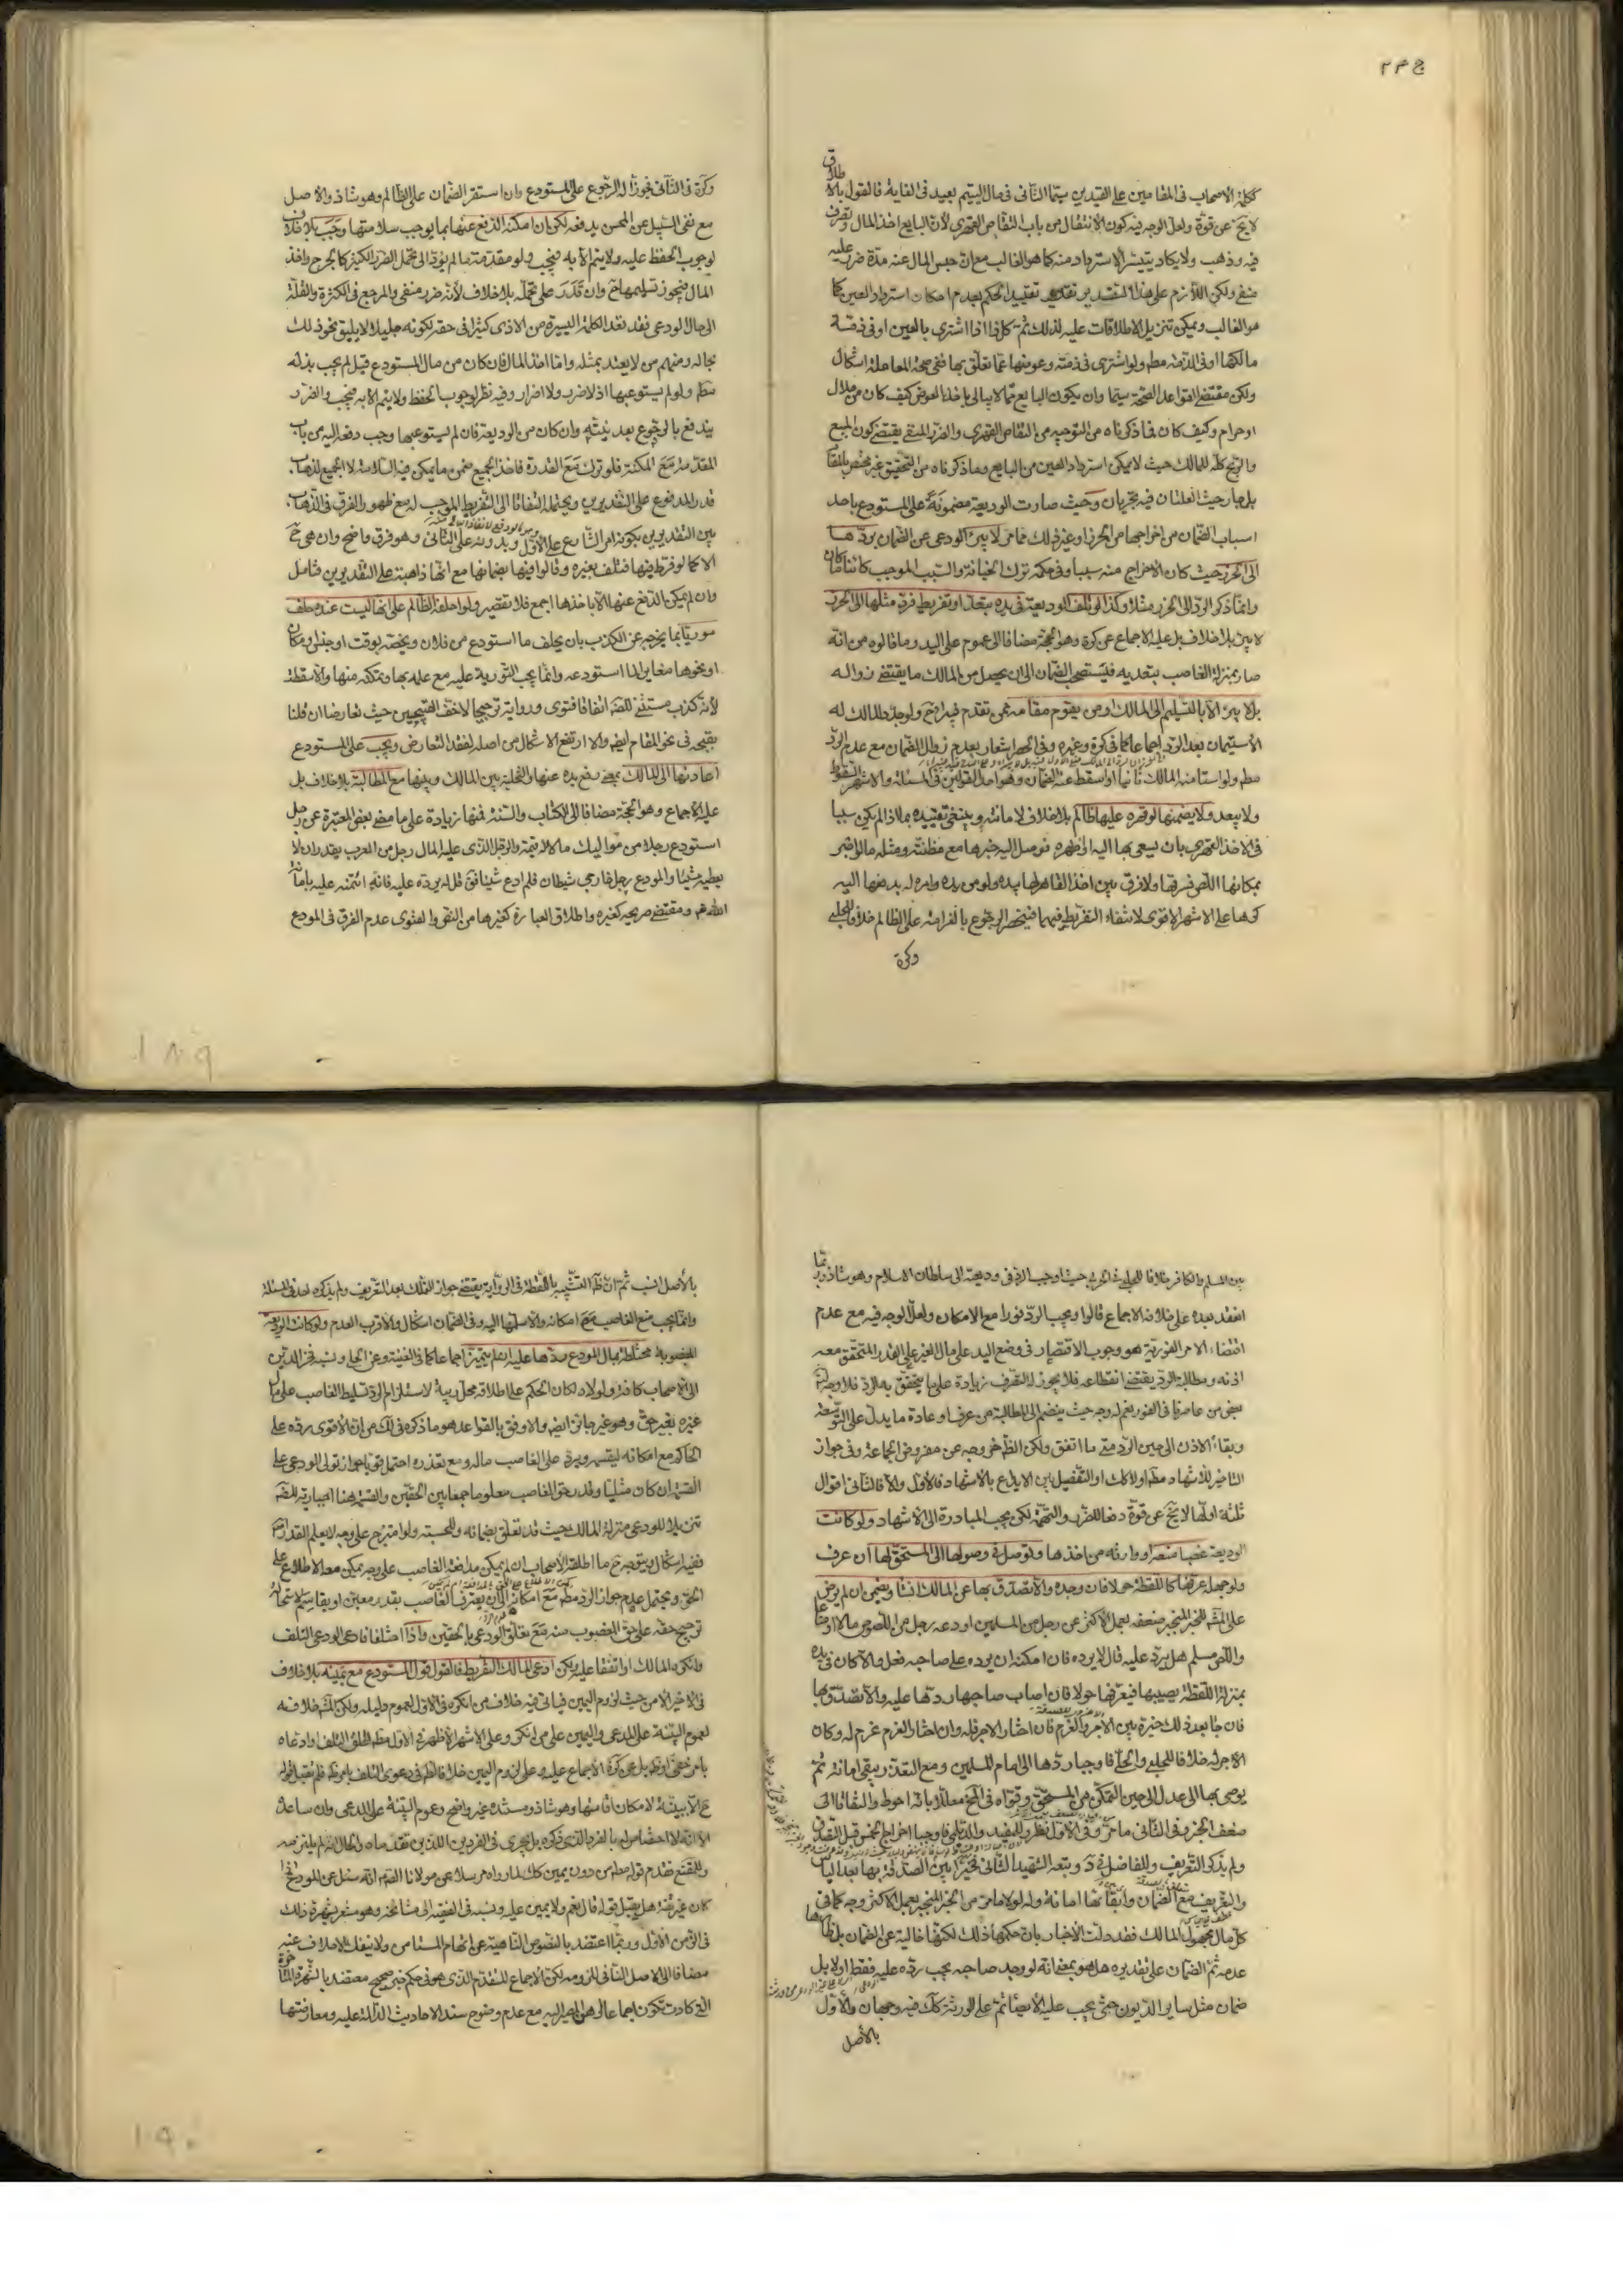 ككلمة الاصحاب فى المقامين على القيدين سيّما الثانى فى مال اليتيم بعيد فى الغاية فالقول بالاطلاق
لا يخ عن قوة ولعل الوجه فيه كون الانتقال من باب التقاص القهرى لأن البايع اخذ المال وتصرف
فيه وذهب ولا يكاد يتيسر الاسترداد منه كما هو الغالب مع ان حبس المال عنه مدة ضرر عليه
منفى ولكن اللازم على هذا التقدير تقييد الحكم بعدم امكان استرداد العين كما
هو الغالب ويمكن تنزيل الاطلاقات عليه لذلك ثم كل ذا اذا اشترى بالعين او فى ذمة
مالكها او فى الذمة مطم ولو اشترى فى ذمته وعوضها عما تعلق بها ففى صحة المعاملة اشكال
ولكن مقتضى القواعد الصحة سيما وان يكون البايع ممن لا يبالى باخذ العوض كيف كان من حلال
او حرام وكيف كان فما ذكرناه من التوجيه من التقاص القهرى والضرر المنفى يقتضى كون المبيع
والربح كله للمالك حيث لا يمكن استرداد العين من البايع وما ذكرناه من التحقيق غير مختص بالمقام
بل جار حيث العلتان فيه تجريان وحيث صارت الوديعة مضمونة على المستودع باحد
اسباب الضمان من اخراجها من الحرز او غير ذلك مما مر لا يبرء الودعى عن الضمان بردها
الى الحرز حيث كان الاخراج منه سببا وفى حكمه ترك الخيانة والسبب الموجب كائنا ما كان
وانما ذكر الرد الى الحرز مثلا وكذا لو تلف الوديعة فى يده بتعد او تفريط فرد مثلها الى الحرز
لا يبرء بلا خلاف بل عليه الاجماع عن كرة وهو الحجة مضافا الى عموم على اليد وما قالوه من انه
صار بمنزلة الغاصب بتعديه فيستصحب الضمان الى ان يحصل من المالك ما يقتضى زواله
بل لا يبرء الا بالتسليم الى المالك او من يقوم مقامه ممن تقدم فيبرء ح ولو جدد المالك له
الاستيمان بعد الرد اجماعا كما فى كرة وغيره وفى الحصر اشعار بعدم زوال الضمان مع عدم الرد
مطم ولو استامنه المالك ثانيا او اسقط عنه الضمان وهو احد القولين فى المسئلة والاشهر السقوط
ولا يبعد ولا يضمنها لو قهره عليها ظالم بلا خلاف لامانته وينبغى تقييده بما اذا لم يكن سببا
فى الاخذ القهرى بان يسعى بها اليه او اظهره فوصل اليه خبرها مع مظنته ومثله ما لو اخبر
بمكانها اللص فسرقها ولا فرق بين اخذ القاهر لها بيده ولو من يده وامره له بدفعها اليه
كرها على الاشهر الاقوى لانتفاء التفريط فيهما فينحصر الرجوع بالغرامة على الظالم خلافا للحلبى
وكرة
وكرة فى الثانى فجوزا له الرجوع على المستودع وان استقر الضمان على الظالم وهو شاذ والاصل
مع نفى السبيل عن المحسن يدفعه لكن ان امكنه الدفع عنها بما يوجب سلامتها وجب بلا خلاف
لوجوب الحفظ عليه ولا يتم الا به فيجب ولو مقدمة ما لم يؤد الى تحمل الضرر الكثير كالجرح واخذ
المال فيجوز تسليمها ح وان قدر على تحمله بلا خلاف لأنه ضرر منفى والمرجع فى الكثرة والقلة
الى حال الودعى فقد تعد الكلمة اليسيرة من الاذى كثيرا فى حقه لكونه جليلا لا يليق نحو ذلك
بحاله ومنهم من لا يعتد بمثله واما اخذ المال فان كان من مال المستودع قيل لم يجب بذله
مطم ولو لم يستوعبها اذ لا ضرر ولا اضرار وفيه نظر لوجوب الحفظ ولا يتم الا به فيجب والضرر
يندفع بالرجوع بعد نيته وان كان من الوديعة فان لم يستوعبها وجب دفعه اليه من باب
المقدمة مع المكنة فلو ترك مع القدرة فاخذ الجميع ضمن ما يمكن فيه السلامة لا الجميع لذهاب
قدر المدفوع على التقديرين ويحتمله التفاتا الى التفريط الموجب له مع ظهور الفرق فى الذهاب
بين التقديرين بكونه بامر الشارع على الاول وبدونه على الثانى وهو فرق واضح وان هى ح
الا كما لو فرط فيها فتلف بغيره وقالوا فيها بضمانها مع انها ذاهبة على التقديرين فتامل
وان لم يمكن الدفع عنها الا باخذها اجمع فلا تقصير ولو احلفه الظالم على انها ليست عنده حلف
موريا بما يخرجه عن الكذب بان يحلف ما استودع من فلان ويخصه بوقت او جنس او مكان
او نحوها مغاير لما استودعه وانما يجب التورية عليه مع علمه بها وتمكنه منها والا سقطت
لأنه كذب مستثنى للضرورة اتفاقا فتوى ورواية ترجيحا لاخف القبيحين حيث تعارضا ان قلنا
بقبحه فى نحو المقام ايضم والا ارتفع الاشكال من اصله لفقد التعارض ويجب على المستودع
اعادتها الى المالك بمعنى رفع يده عنها والتخلية بين المالك وبينها مع المطالبة بلا خلاف بل
عليه الاجماع وهو الحجة مضافا الى الكتاب والسنة فمنها زيادة على ما مضى بعض المعتبرة عن رجل
استودع رجلا من مواليك مالا له قيمة والرجل الذى عليه المال رجل من العرب يقدر ان لا
يعطيه شيئا والمودع رجل خارجى شيطان فلم ادع شيئا فق قل له يرده عليه فانه ائتمنه عليه بامانة
الله عم ومقتضى صريحه كغيره واطلاق العبارة كغيرها من النص والفتوى عدم الفرق فى المودع
بين المسلم والكافر خلافا للحلبى فى الحربى حيث اوجب الرد فى وديعته الى سلطان الاسلام وهو شاذ وربما
انعقد بعده على خلافه الاجماع قالوا ويجب الرد فورا مع الامكان ولعل الوجه فيه مع عدم
اقتضاء الامر الفورية هو وجوب الاقتصار فى وضع اليد على مال الغير على القدر المتحقق معه
اذنه ومطالبة الرد يقتضى انقطاعه فلا يجوز له التصرف زيادة على ما يتحقق به الرد فلا وجه
بعض من عاصرنا فى الفور نعم له وجه حيث ينضم الى المطالبة من عرف او عادة ما يدل على التوسعة
وبقاء الاذن الى حين الرد متى ما اتفق ولكن الظ خروجه عن مفروض الجماعة وفى جواز
التاخير للاشهاد مطم او لا كك او التفصيل بين الايداع بالاشهاد فالاول والا فالثانى اقوال
ثلثة اولها لا يخ عن قوة دفعا للضرر والتهمة لكن يجب المبادرة الى الاشهاد ولو كانت
الوديعة غصبا منعه او وارثه من اخذها وتوصل فى وصولها الى المستحق لها ان عرف
ولو جهل عرفها كاللقطة حولا فان وجده والا تصدق بها عن المالك ان شاء ويضمن ان لم يرض
على المش للخبر المنجبر ضعفه بعمل الاكثر عن رجل من المسلمين اودعه رجل من اللصوص مالا او متاعا
واللص مسلم هل يرد عليه قال لا يرده فان امكنه ان يرده على صاحبه فعل والا كان فى يده
بمنزلة اللقطة يصيبها فيعرفها حولا فان اصاب صاحبها ردها عليه والا تصدق بها
فان جا بعد ذلك خيره بين الاجر والغرم فان اختار الاجر فله وان اختار الغرم غرم له وكان
الاجر له خلافا للحلبى والحلى فاوجبا ردها الى امام المسلمين ومع التعذر يبقى امانة ثم
يوصى بها الى عدل الى حين التمكن من المستحق وقواه فى المخ معللا بانه احوط والتفاتا الى
ضعف الخبر وفى الثانى ما مر وفى الاول نظر وللمفيد والديلمى فاوجبا اخراج الخمس قبل التصدق
ولم يذكر التعريف وللفاضل فى د وتبعه الشهيد الثانى فخير بين الصدقة بها بعد الياس
والتعريف مع الضمان وابقائها امانة وله لولا ما مر من الخبر المنجبر بعمل الاكثر وجه كما فى
كل مال مجهول المالك فقد دلت الاخبار بان حكمها ذلك لكنها خالية عن الضمان بل ظاهرها
عدمه ثم الضمان على تقديره هل هو بمعنى انه لو وجد صاحبه يجب رده عليه فقط او لا بل
ضمان مثل ساير الديون حتى يجب عليه الايصاء ثم على الورثة كك فيه وجهان والاول
بالاصل
بالأصل انسب ثم ان ظ التشبيه باللقطة فى الرواية يقتضى جواز التملك بعد التعريف ولم يذكره احد فى المسئلة
وانما يجب منع الغاصب مع امكانه والا سلمها اليه وفى الضمان اشكال والاقرب العدم ولو كانت الوديعة
المغصوبة مختلطة بمال المودع ردها عليه ان لم يتميز اجماعا كما فى الغنية وعن الحلى ونسبه فخر الدين
الى الاصحاب كافة ولولاه لكان الحكم على اطلاقه محل ريبة لاستلزام الرد تسليط الغاصب على مال
غيره بغير حق وهو غير جائز ايضم والاوفق بالقواعد هو ما ذكره فى لك من ان الاقوى رده على
الحاكم مع امكانه ليقسمه ويرد على الغاصب ماله ومع تعذره احتمل قويا جواز تولى الودعى على
القسمة ان كان مثليا وقدر حق الغاصب معلوما جمعا بين الحقين والقسمة هنا اجبارية للضرورة
تنزيلا للودعى منزلة المالك حيث قد تعلق بضمانه وللحسبة ولو امتزج على وجه لا يعلم القدر اصلا
ففيه اشكال ويتوجه ح ما اطلقه الاصحاب ان لم يمكن مدافعة الغاصب على وجه يمكن معه الاطلاع على
الحق ويحتمل عدم جواز الرد مطم مع امكانه الى ان يعترف الغاصب بقدر معين او يقاسم لاستحالة
ترجيح حقه على حق المغصوب منه مع تعلق الودعى بالحقين واذا اختلفا فادعى الودعى التلف
وانكره المالك او اتفقا عليه ولكن ادعى المالك التفريط فالقول قول المستودع مع يمينه بلا خلاف
فى الاخير الا من حيث لزوم اليمين فياتى فيه خلاف من انكره فى الاول لعموم دليله ولكن المش خلافه
لعموم البينة على المدعى واليمين على من انكر وعلى الاشهر الاظهر فى الاول مطم اطلق التلف او ادعاه
بامر خفى او ظ بل عن كرة الاجماع عليه وعلى لزوم اليمين خلافا لط فى دعوى التلف بامر ظ فلم يقبل قوله
ح الا ببينة لامكان اقامتها وهو شاذ ومستنده غير واضح وعموم البينة على المدعى وان ساعده
الا انه لا اختصاص له بالفرد الذى ذكره بل يجرى فى الفردين اللذين نفد ماه والحال انه لم يلتزمه
وللمقنع فقدم قوله مطم من دون يمين كك لما رواه مرسلا عن مولانا الصم انه سئل عن المودع اذا
كان غير ثقة هل يقبل قوله قال نعم ولا يمين عليه ونسبه فى الفقيه الى مشايخه وهو مشعر بشهرة ذلك
فى الزمن الاول وربما اعتضد بالنصوص الناهية عن اتهام المستامن ولا ينفك الاحلاف عنه
مضافا الى الاصل النافى للزومه لكن الاجماع المتقدم الذى هو فى حكم خبر صحيح معتضد بالشهرة المتاخرة
التى كادت تكون اجماعا الى هو المصير اليه مع عدم وضوح سند الاحاديث الدالة عليه ومعارضتها